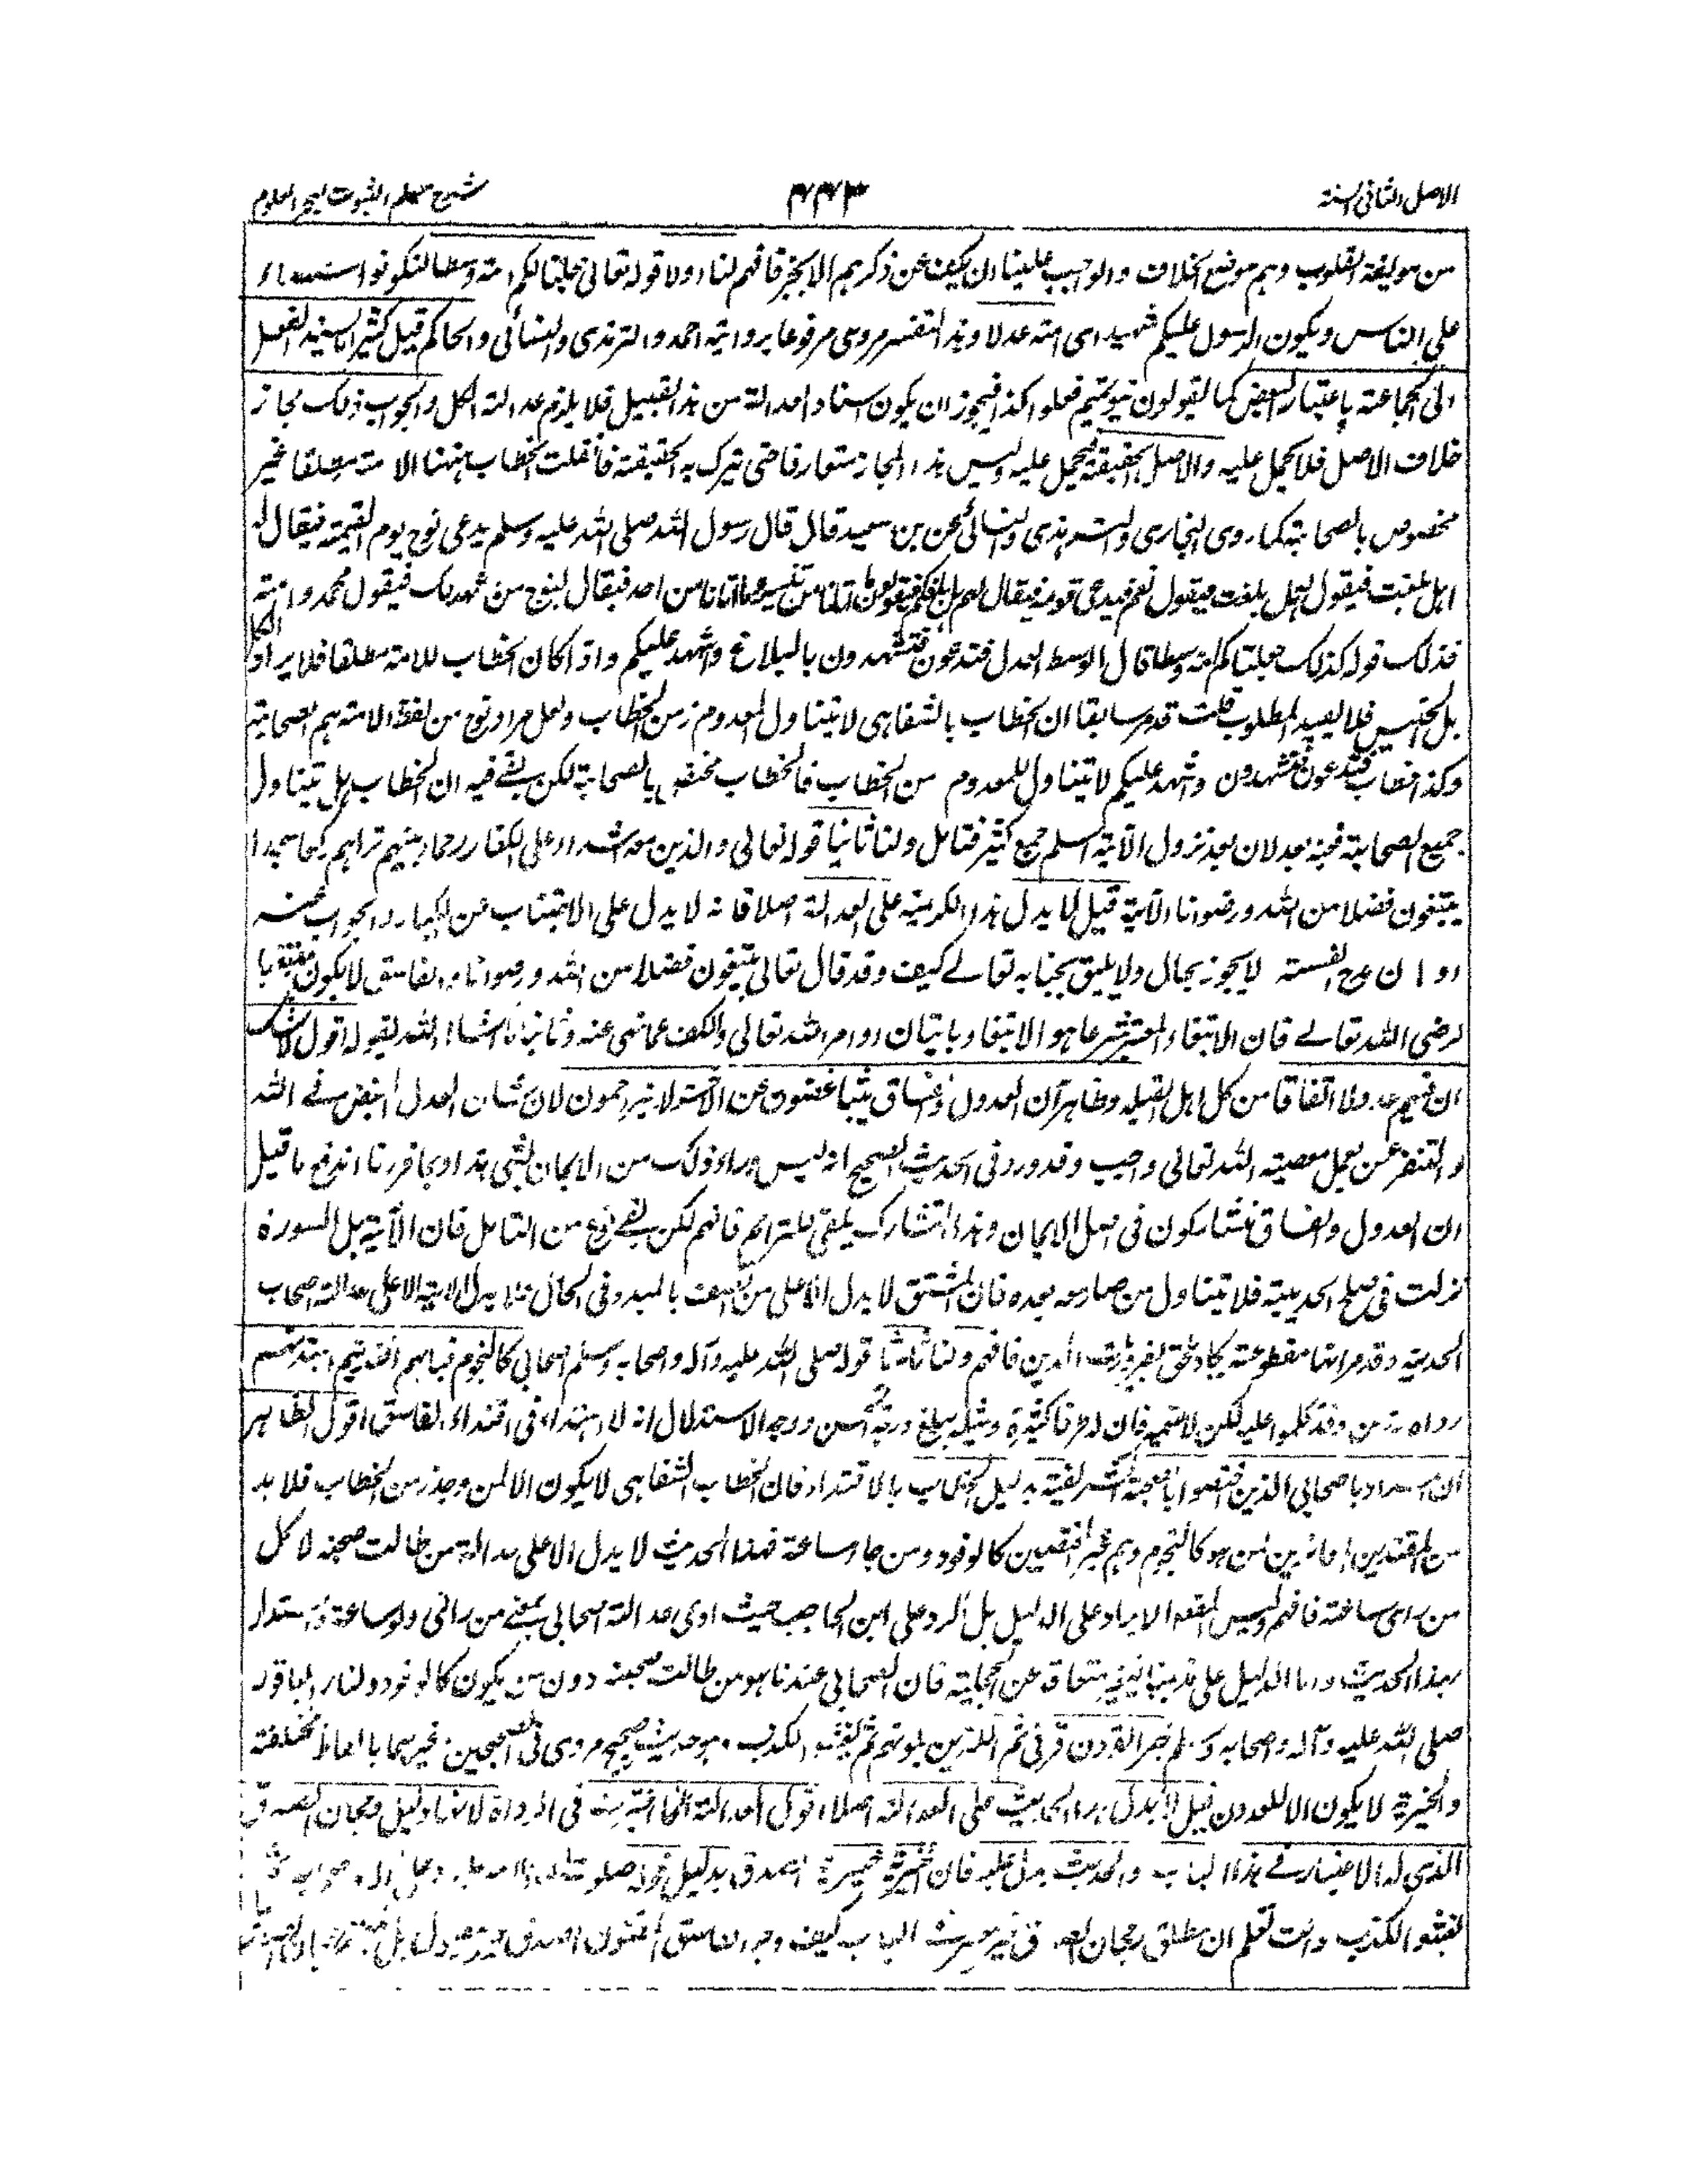 الاصل الثانی السنة
۴۴۳
شرح مسلم الثبوت لبحر العلوم
من مولفة القلوب وهم موضع الخلاف والواجب علينا ان نكف عن ذكرهم الا بخير فافهم لنا اولا قوله تعالى جعلناكم امة وسطا لتكونوا شهداء
على الناس ويكون الرسول عليكم شهيدا اى امة عدلا وهذا التفسير مروى مرفوعا برواية احمد والترمذى والنسائى والحاكم قيل كثيرا ما يسند الفعل
الى الجماعة باعتبار البعض كما يقولون بنو تميم فعلوا كذا فيجوز ان يكون اسناد العدالة من هذا القبيل فلا يلزم عدالة الكل والجواب ذلك مجاز
خلاف الاصل فلا يحمل عليه والاصل الحقيقة فيحمل عليه وليس هذا المجاز متعارفا حتى يترك به الحقيقة فان قلت الخطاب ههنا الامة مطلقا غير
مخصوص بالصحابة كما روى البخارى والترمذى والنسائى عن بن سعيد قال قال رسول الله صلى الله عليه وسلم يدعى نوح يوم القيمة فيقال له
اهل بلغت فيقول هل بلغت فيقول نعم فيدعى قومه فيقال لهم هل بلغكم فيقولون ما اتانا من نذير وما اتانا من احد فيقال لنوح من شهد لك فيقول محمد وامته
فذلك قوله كذلك جعلناكم امة وسطا قال الوسط العدل فتدعون فتشهدون بالبلاغ واشهد عليكم واذا كان الخطاب للامة مطلقا فلا يراد الكل
بل الجنس فلا يفيد المطلوب قلت قد مر سابقا ان الخطاب بالشفاهى لا يتناول المعدوم زمن الخطاب ولعل مراد نوح من لفظ الامة هم الصحابة
وكذا خطاب فتدعون فتشهدون واشهد عليكم لا يتناول للمعدوم من الخطاب فالخطاب مختص بالصحابة لكن بقى فيه ان الخطاب هل يتناول
جميع الصحابة فيه بعد لان بعد نزول الآية اسلم جمع كثير فتامل ولنا ثانيا قوله تعالى والذين معه اشداء على الكفار رحماء بينهم تراهم ركعا سجدا
يبتغون فضلا من الله ورضوانا الآية قيل لا يدل هذه الكريمة على العدالة اصلا فانه لا يدل على الاجتناب عن الكبائر والجواب عنه
اولا ان مدح الفسقة لا يجوز بحال ولا يليق بجنابه تعالى كيف وقد قال تعالى يبتغون فضلا من الله ورضوانا والفاسق لا يكون مبتغيا
لرضى الله تعالى فان الابتغاء المعتبر شرعا هو الابتغاء باتيان اوامر الله تعالى والكف عما نهى عنه وثانيا ما اشار الله بقوله اقول لا شك
ان فيهم عدولا اتفاقا من كل اهل القبلة وظاهر ان العدول والفساق يتباغضون عن الآخر ولا يرحمون لان شان العدل البغض فى الله
والتنفر عمن يعمل معصية الله تعالى واجب وقد ورد فى الحديث الصحيح انه ليس وراء ذلك من الايمان شئ هذا وبما قررنا اندفع ما قيل
ان العدول والفساق متشاركون فى اصل الايمان وهذا التشارك يكفى للتراحم فافهم لكن بقى نوع من التامل فان الآية بل السورة
نزلت فى صلح الحديبية فلا يتناول من صار معه بعده فان المشتق لا يدل الا على من اتصف بالمبدء فى الحال فلا يدل الآية الا على عدالة اصحاب
الحديبية وقد مر انها مقطوعة يكاد يلحق بضروريات الدين فافهم ولنا ثالثا قوله صلى الله عليه وآله واصحابه وسلم اصحابى كالنجوم فبايهم اقتديتم اهتديتم
رواه رزين وقد تكلموا عليه لكن لا يضر فان له طرقا كثيرة ومثله يبلغ درجة الحسن ووجه الاستدلال انه لا اهتداء فى اقتداء الفاسق اقول الظاهر
ان المراد باصحابى الذين اختصوا بالصحبة الشريفة بدليل الخطاب بالاقتداء فان الخطاب الشفاهى لا يكون الا لمن وجد زمن الخطاب فلا بد
من المقتدين مغائرين لمن هو كالنجوم وهم غير المختصين كالوفود ومن جاء ساعة فهذا الحديث لا يدل الا على عدالة من طالت صحبته لا كل
من رأى ساعة فافهم وليس المقصد الايراد على الدليل بل الرد على ابن الحاجب حيث ادعى عدالة الصحابى بمعنى من رأنى ولو ساعة واستدل
بهذا الحديث واما الدليل على مذهبنا فغير متعاق عن الحجاية فان الصحابى عندنا هو من طالت صحبته دون من يكون كالوفود ولنا رابعا قوله
صلى الله عليه وآله واصحابه وسلم خير القرون قرنى ثم الذين يلونهم ثم يفشو الكذب وهو حديث صحيح مروى فى الصحيحين وغيرهما بالفاظ مختلفة
والخيرية لا يكون الا للعدون قيل لا يدل هذا الحديث على العدالة اصلا اقول العدالة المانعة فى الرواة لانها دليل رجحان الصدق
الذى له الاعتبار فى هذا الباب والحديث يدل عليه فان الخيرية خيرية الصدق بدليل قوله صلوات الله عليه وعلى آله واصحابه ثم
يفشو الكذب وانت تعلم ان مطلق رجحان الصدق غير معتبر فى الباب كيف وخبر الفاسق المظنون الصدق غير مقبول بل